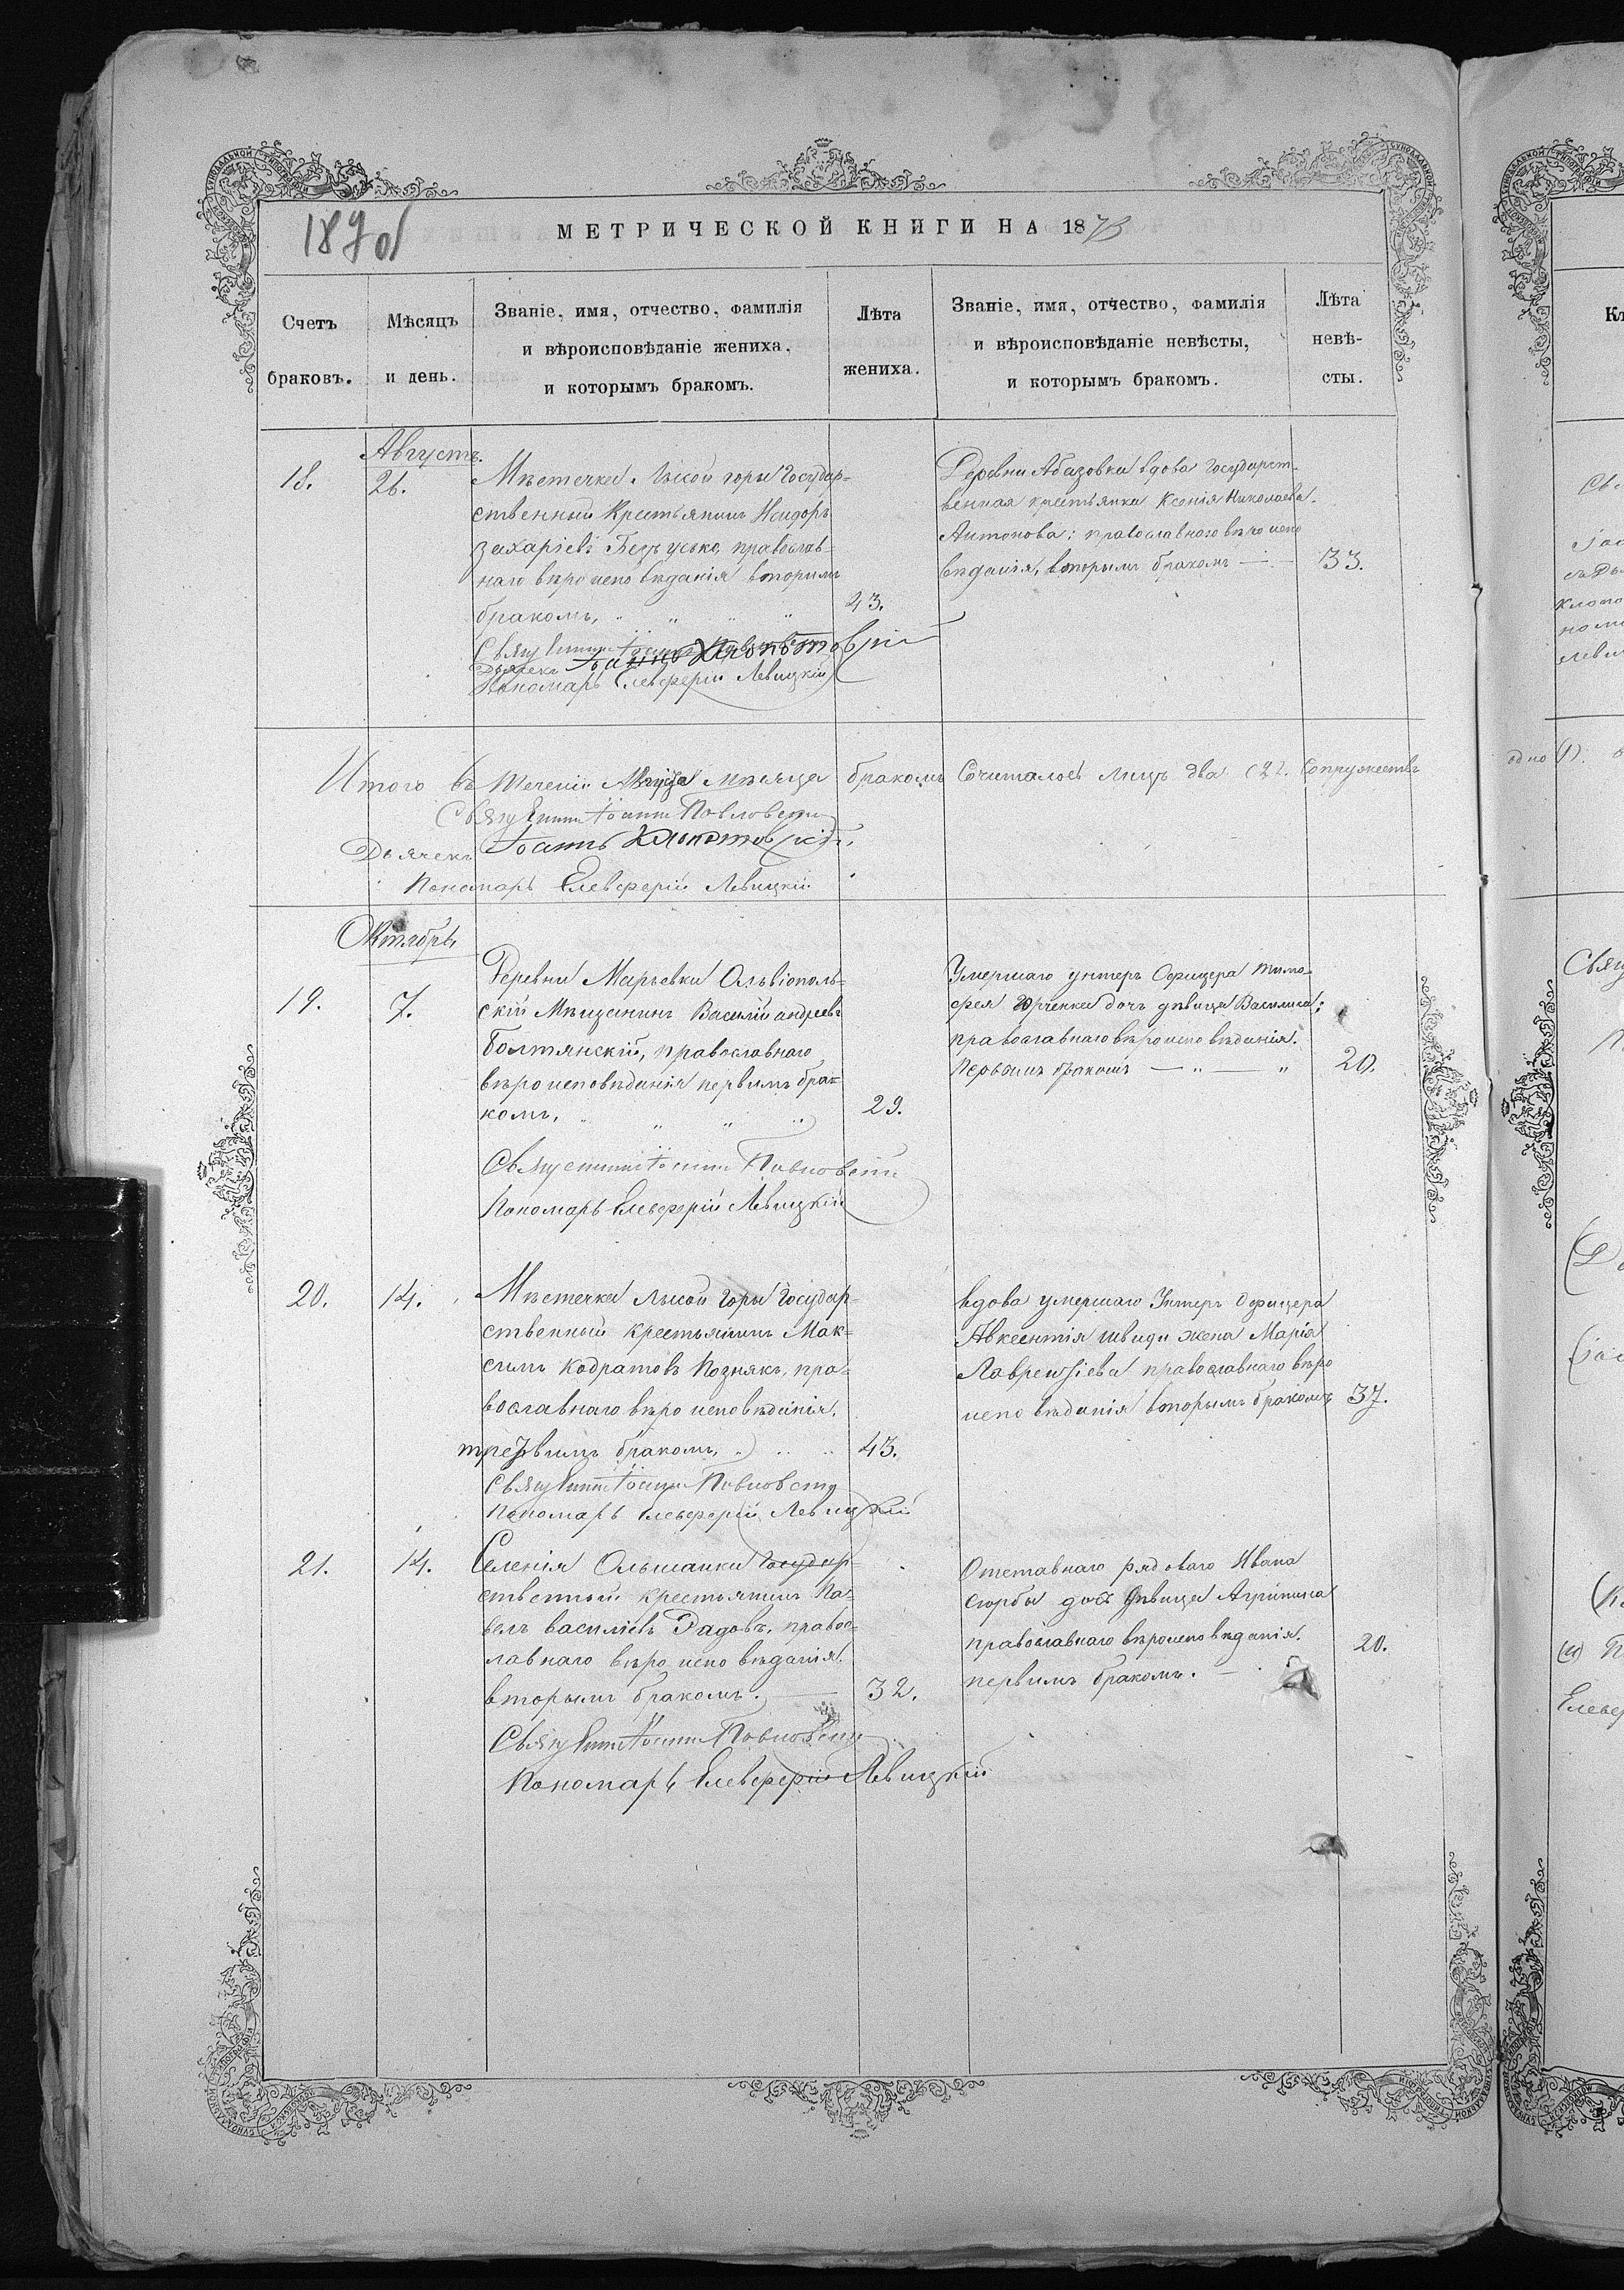 1870
МЕТРИЧЕСКОЙ КНИГИ НА 1873
Счетъ браковъ.
Мѣсяцъ и день.
Званіе, имя, отчество, фамилія
и вѣроисповѣданіе жениха,
и которымъ бракомъ.
Лѣта жениха.
Званіе, имя, отчество, фамилія
и вѣроисповѣданіе невѣсты,
и которымъ бракомъ.
Лѣта невѣ-
сты.
Августъ.
18.
26.
Мѣстечка Лысой горы Государ=
ственный Крестьянинъ Исидоръ
Захаріевъ Безъусько, православ=
наго вѣроисповѣданія вторымъ
бракомъ,
43.
Священникъ Іоаннъ
Дьячекъ Іоаннъ Клопотовскій
Пономарь Елевферій Левицкій
Деревни Абазовки вдова Государст-
венная крестьянка Ксенія Николаева
Антонова; православнаго вѣроиспо
вѣданія, вторымъ бракомъ —
33.
Итого въ теченіи Августа мѣсяца бракомъ Сочиталось лицъ два (2). Сопружествъ
Священникъ Іоаннъ Павловскій
Дьячекъ Іоаннъ Клопотовскій.
Пономарь Елевферій Левицкій
Октябрь
19.
7.
Деревни Марьевки Ольвіополь=
скій Мѣщанинъ Василій андреевъ
Болтянскій, православнаго
вѣроисповѣданія первымъ бра=
комъ,
29.
Священникъ Іоаннъ Павловскій
Пономарь Елевферій Левицкій
Умершаго унтеръ Офицера Тимо=
фея Юрченка дочь дѣвица Василиса;
православнаго вѣроисповѣданія.
Первымъ бракомъ —
20.
20.
14.
Мѣстечка Лысой Горы Государ=
ственный крестьянинъ Мак=
симъ Кодратовъ Познякъ, пра=
вославнаго вѣроисповѣданія.
бракомъ,
43.
Священникъ Іоаннъ Павловскій
Пономарь Елевферій Левицкій
вдова умершаго Унтеръ Офицера
Авксентія швиди жена Марія
Лаврентіева православнаго вѣро
исповѣданія вторымъ бракомъ
37.
21.
14.
Селенія Ольшанки Государ=
ственный крестьянинъ Па=
велъ василіевъ Радовъ, правос=
лавнаго вѣроисповѣданія.
вторымъ бракомъ. —
32.
Священникъ Іоаннъ Павловскій
Пономарь Елевферій Левицкій
Отставнаго рядоваго Ивана
скорбы дочь дѣвица Агрипина
православнаго вѣроисповѣданія.
первымъ бракомъ. —
20.